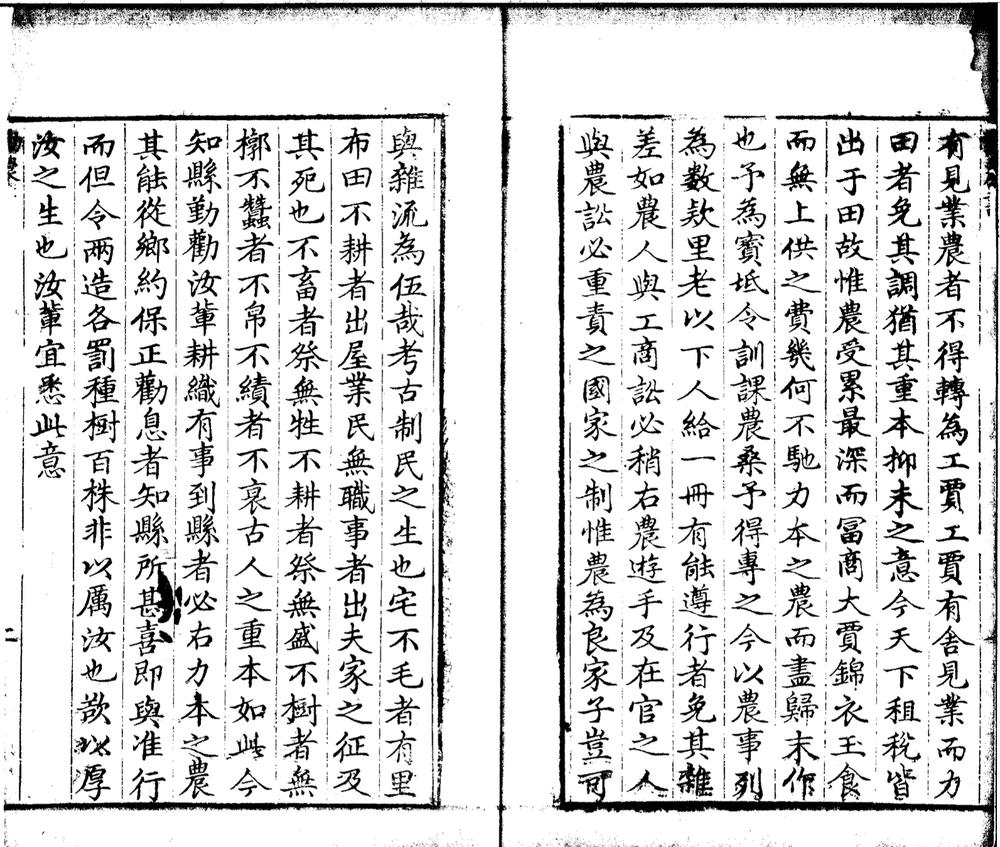 有見業農者不得轉為工賈工賈有舍見業而力
田者免其調猶其重本抑末之意今天下租稅皆
出于田故惟農受累最深而冨商大賈錦衣王食
而無上供之費幾何不馳力本之農而盡歸末作
也予為寳坻令訓課農桑予得專之今以農事列
為數欵里老以下人給一冊有能遵行者免其雜
差如農人與工商訟必稍右農遊手及在官之人
與農訟必重責之國家之制惟農為良家子豈可
與雜流為伍哉考古制民之生也宅不毛者有里
布田不耕者出屋業民無職事者出夫家之征及
其死也不畜者祭無牲不耕者祭無盛不樹者無
槨不蠶者不帛不績者不衰古人之重本如此今
知縣勤勸汝軰耕織有事到縣者必右力本之農
其能從鄉約保正勸息者知縣所甚喜即與准行
而但令兩造各罰種樹百株非以厲汝也欲以厚
汝之生也汝軰宜悉此意
二